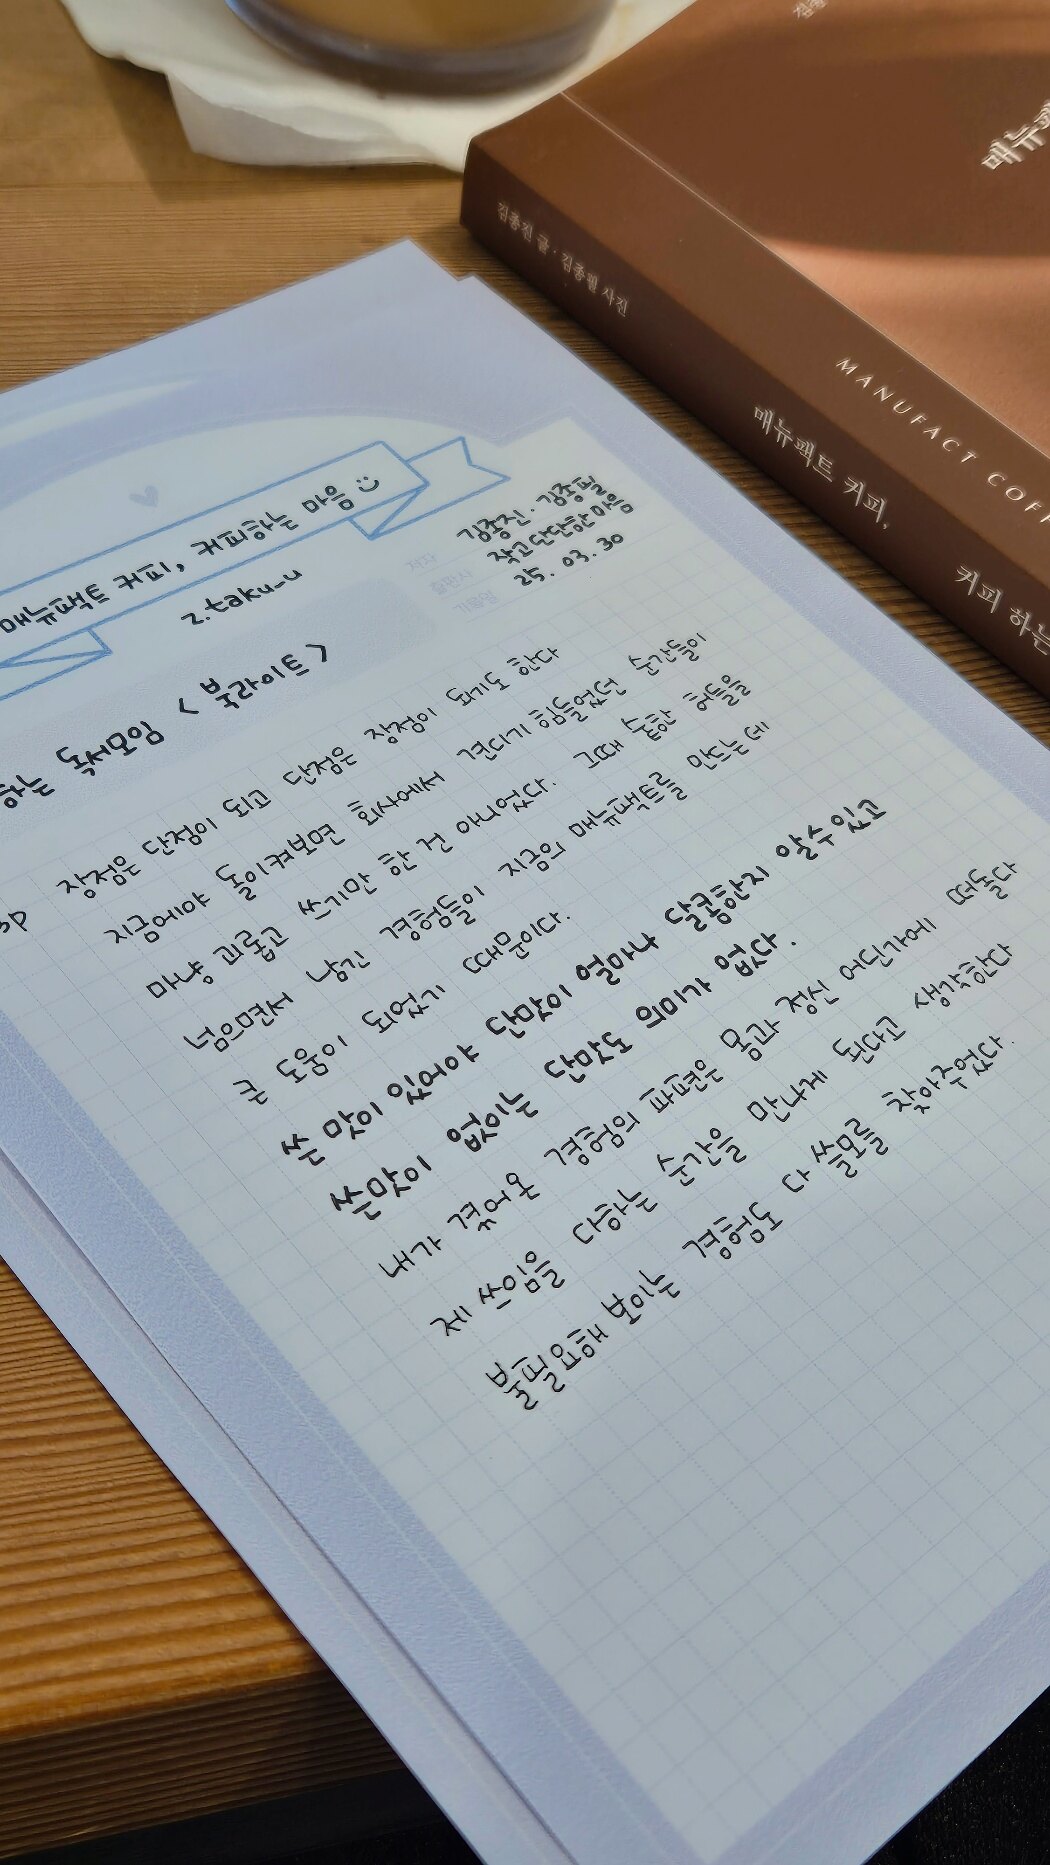 매뉴팩트 커피, 커피하는 마음
z.taku_u
저자 김종진·김종필
출판사 작고단단한마음
기록일 25. 03. 30
하는 독서모임 <북라이트>
3p
장점은 단점이 되고 단점은 장점이 되기도 한다
지금에야 돌이켜보면 회사에서 견디기 힘들었던 순간들이
마냥 괴롭고 쓰기만 한 건 아니었다. 그때 숱한 허들을
넘으면서 남긴 경험들이 지금의 매뉴팩트를 만드는데
큰 도움이 되었기 때문이다.
쓴 맛이 있어야 단맛이 얼마나 달콤한지 알수있고
쓴맛이 없이는 단맛도 의미가 없다.
내가 겪어온 경험의 파편은 몸과 정신 어딘가에 떠돌다
제 쓰임을 다하는 순간을 만나게 된다고 생각한다
불필요해 보이는 경험도 다 쓸모를 찾아주었다.
매뉴팩
김종진 글·김종필 사진
MANUFACT COFF
매뉴팩트 커피,
커피 하는